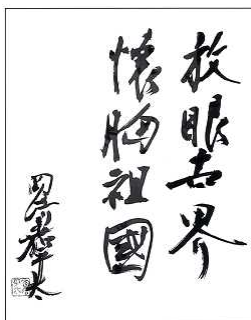 放眼世界
懷胸祖國